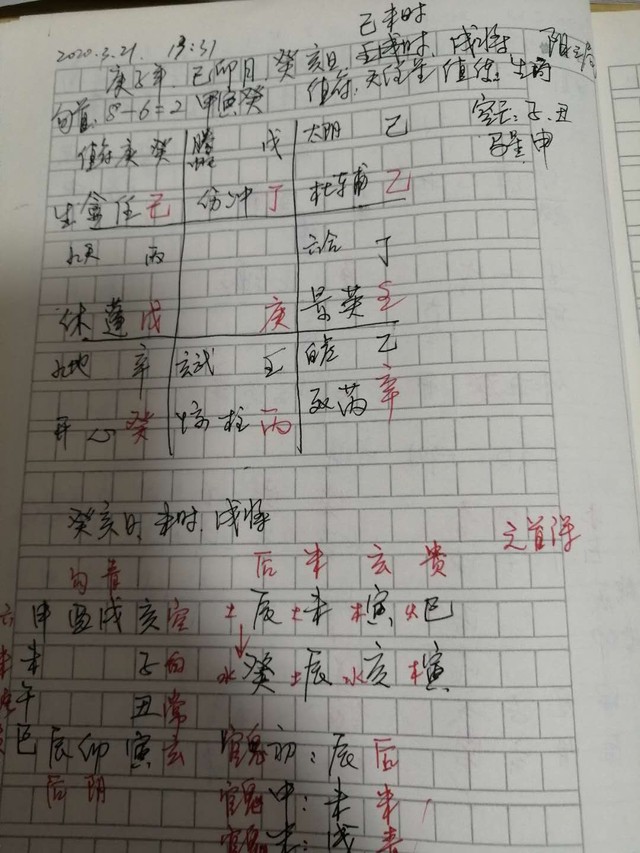 己未时
2020.3.21. 13:31
庚子年 己卯月 癸亥日 戌将
旬首: 8-6=2 甲寅癸 值符: 天任星 值使: 生门
空亡: 子、丑
马星 申
值符 庚 癸 戊 太阴 己
生 任 己 伤冲 丁 杜 辅 乙
九天 丙 六合 丁
休 蓬 戊 庚 景 英 壬
九地 辛 玄武 壬 白虎 乙
开心 癸 惊 柱 丙 死芮 辛
癸亥日 未时 戌将
元首课
后 朱 玄 贵
勾 青
六 申 酉 戌 亥 空 土辰 土未 木寅 火巳
朱 未 子 白 水癸 土辰 水亥 木寅
午 丑 常
巳 辰 卯 寅 玄 官鬼 初: 辰 后
后 阴 官鬼 中: 未 朱
官鬼 末: 戌 青